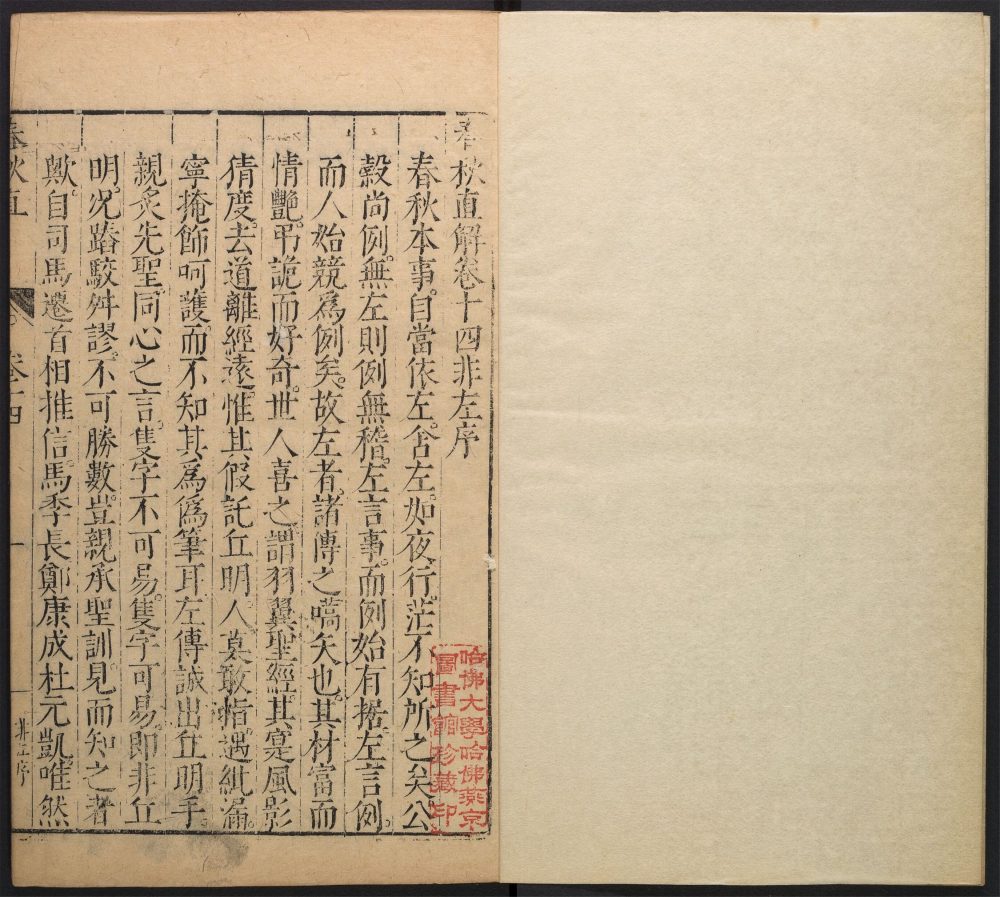 春秋直解卷十四非左序
春秋本事。自當依左。舍左。如夜行。茫不知所之矣。公
穀尚例。無左則例無稽。左言事。而例始有据。左言例。
而人始競爲例矣。故左者。諸傳之嚆矢也。其材富而
情艷。弔詭而好奇。世人喜之。謂羽翼聖經。其寔風影
猜度。去道離經遠。惟其假託丘明。人莫敢指。遇紕漏。
寧掩飾呵護。而不知其爲僞筆耳。左傳誠出丘明手。
親炙先聖。同心之言。隻字不可易。隻字可易。即非丘
明。况踳駮舛謬。不可勝數。豈親承聖訓。見而知之者
歟。自司馬遷首相推信。馬季長鄭康成杜元凱。唯然
春秋直
卷十四
一
非左序
哈佛大學哈佛燕京
圖書館珍藏印